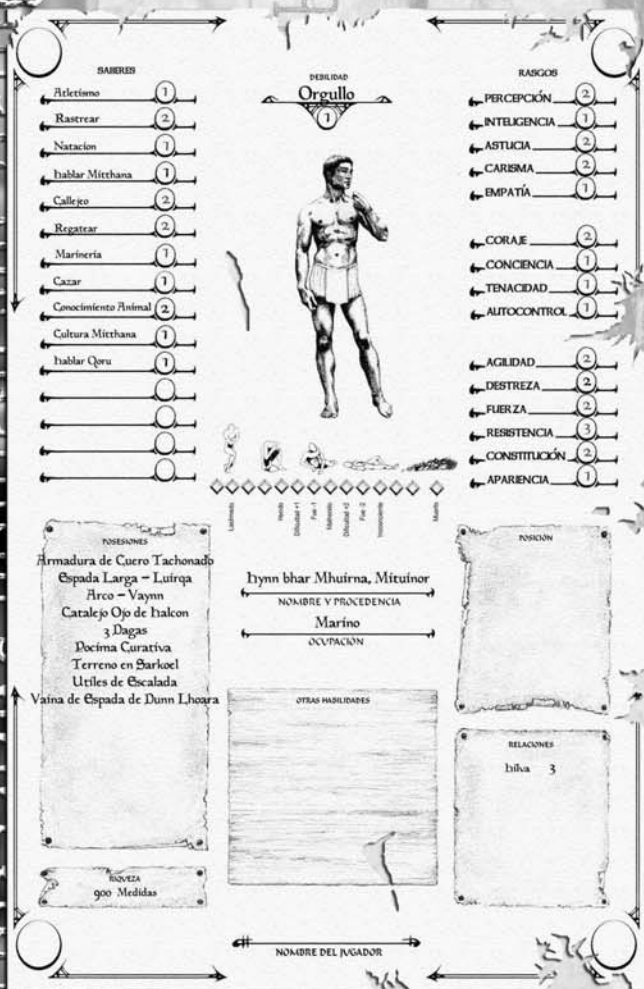 SABERES
Atletismo 1
Rastrear 2
Natacion 1
Hablar Mitthana 1
Callejeo 2
Regatear 2
Marineria 1
Cazar 1
Conocimiento Animal 2
Cultura Mitthana 1
Hablar Qoru 1
DEBILIDAD
Orgullo
1
RASGOS
PERCEPCIÓN 2
INTELIGENCIA 1
ASTUCIA 2
CARISMA 2
EMPATÍA 1
CORAJE 2
CONCIENCIA 1
TENACIDAD 1
AUTOCONTROL 1
AGILIDAD 2
DESTREZA 2
FUERZA 2
RESISTENCIA 3
CONSTITUCIÓN 2
APARIENCIA 1
Lastimado
Herido
Dificultad +1
Fue -1
Malherido
Dificultad +2
Fue -2
Inconsciente
Muerto
POSESIONES
Armadura de Cuero Tachonado
Espada Larga – Luirqa
Arco – Vaynn
Catalejo Ojo de Halcon
3 Dagas
Pocima Curativa
Terreno en Sarkoel
Utiles de Escalada
Vaina de Espada de Dunn Lhoara
Hynn bhar Mhuirna, Mituinor
NOMBRE Y PROCEDENCIA
Marino
OCUPACIÓN
POSICIÓN
OTRAS HABILIDADES
RELACIONES
Hilva 3
RIQUEZA
900 Medidas
NOMBRE DEL JUGADOR